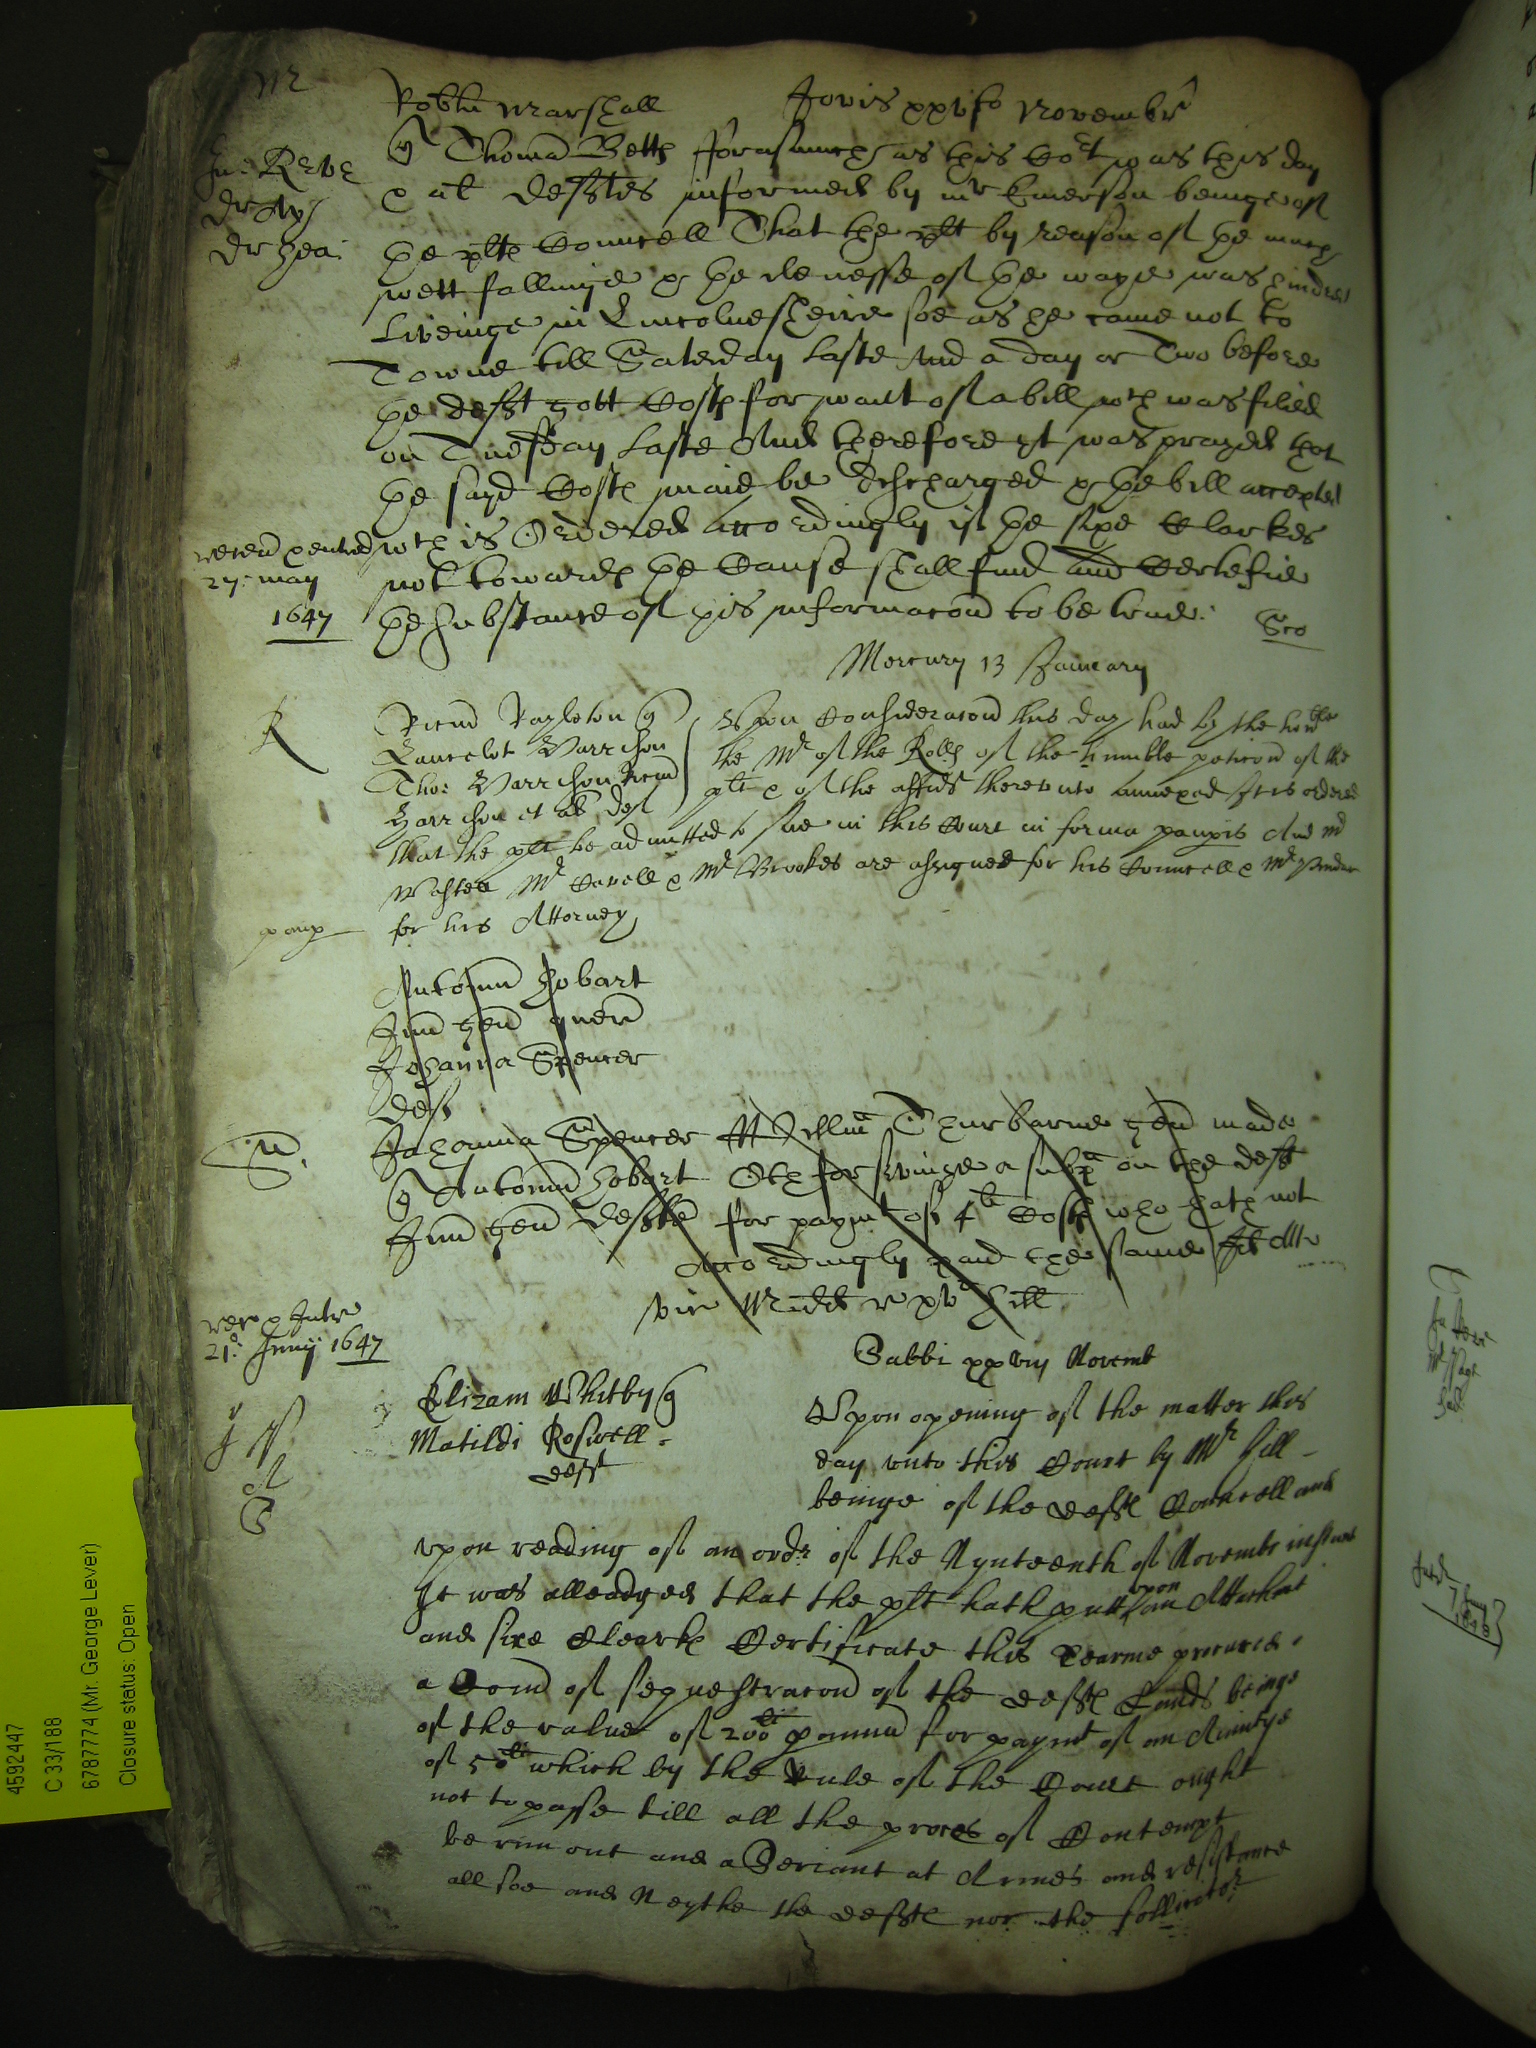 Mr
Robtu Marshall Jovis xxvjto Novembr
In: Reve
Dr
Dr hea:
q Thoma Betts Forasmuch as this Cort was this day
& al defftes informed by mr Emerson beinge of
the plts Councell That the plt by reason of the much
wett fallinge & the of the waye was hindred
Liveinge in Lincolnesheire soe as he came not to
Towne till Saterday laste And a day or Two before
the defft gott Costs for want of a bill wch was filed
on Tuesday laste And therefore yt was prayed that
the sayd Costs maie be discharged & the bill accepted
wch is Ordered accordingly if the sixe Clarkes
not towards the Cause shall find and Certefie
the substance of this informacon to be true:
Sco
27: may
1647
Mercury 13 January
R
Ricud q
Lancelot Harrison
Tho: Harrison Ricud
Harrison et al def
Upon Consideracon this day had by the honble
the Mr of the Rolls of the humble peticon of the
plt & of the affidt thereunto annexed It is ordered
that the plt be admitted to sue in this Court in forma paupis And Mr
Mr Savell & Mr Brookes are assigned for his Councell & Mr
for his Attorney
paup
Antoniu Hobart
Jun gen quer
Johanna Spencer
def
Johanna Spencer Willm Thurbarne gen made
q Antoniu Hobart Oth for servinge a subpa on the defft
Jun gen defften for paymt of 4li Costs who hath not
Accordingly paid the same It Att
vic Midd r xvo Hill
21o: Junij 1647
Sabbi xxviij Novemb
Elizam Whitby q
Matildi Roswell
defft
Upon opening of the matter this
day vnto this Court by Mr Hill
beinge of the defftes Councell and
vpon reading of an ordr of the Nynteenth of Novembr instant
It was alleadged that the plt hath putt upon an Attachmt
and sixe Clearks Certificate this Tearme procured
a Comd of sequestracon of the defftes Lands beinge
of the value of 200li p annu for paymt of an Anuitye
of 50li which by the Rule of the Court ought
not to passe till all the proces of Contempt
be run out and a Seriant at Armes and resistance
allsoe and Neythe the defftes nor the sollicitor
4592447
C 33/188
6787774 (Mr. George Lever)
Closure status: Open